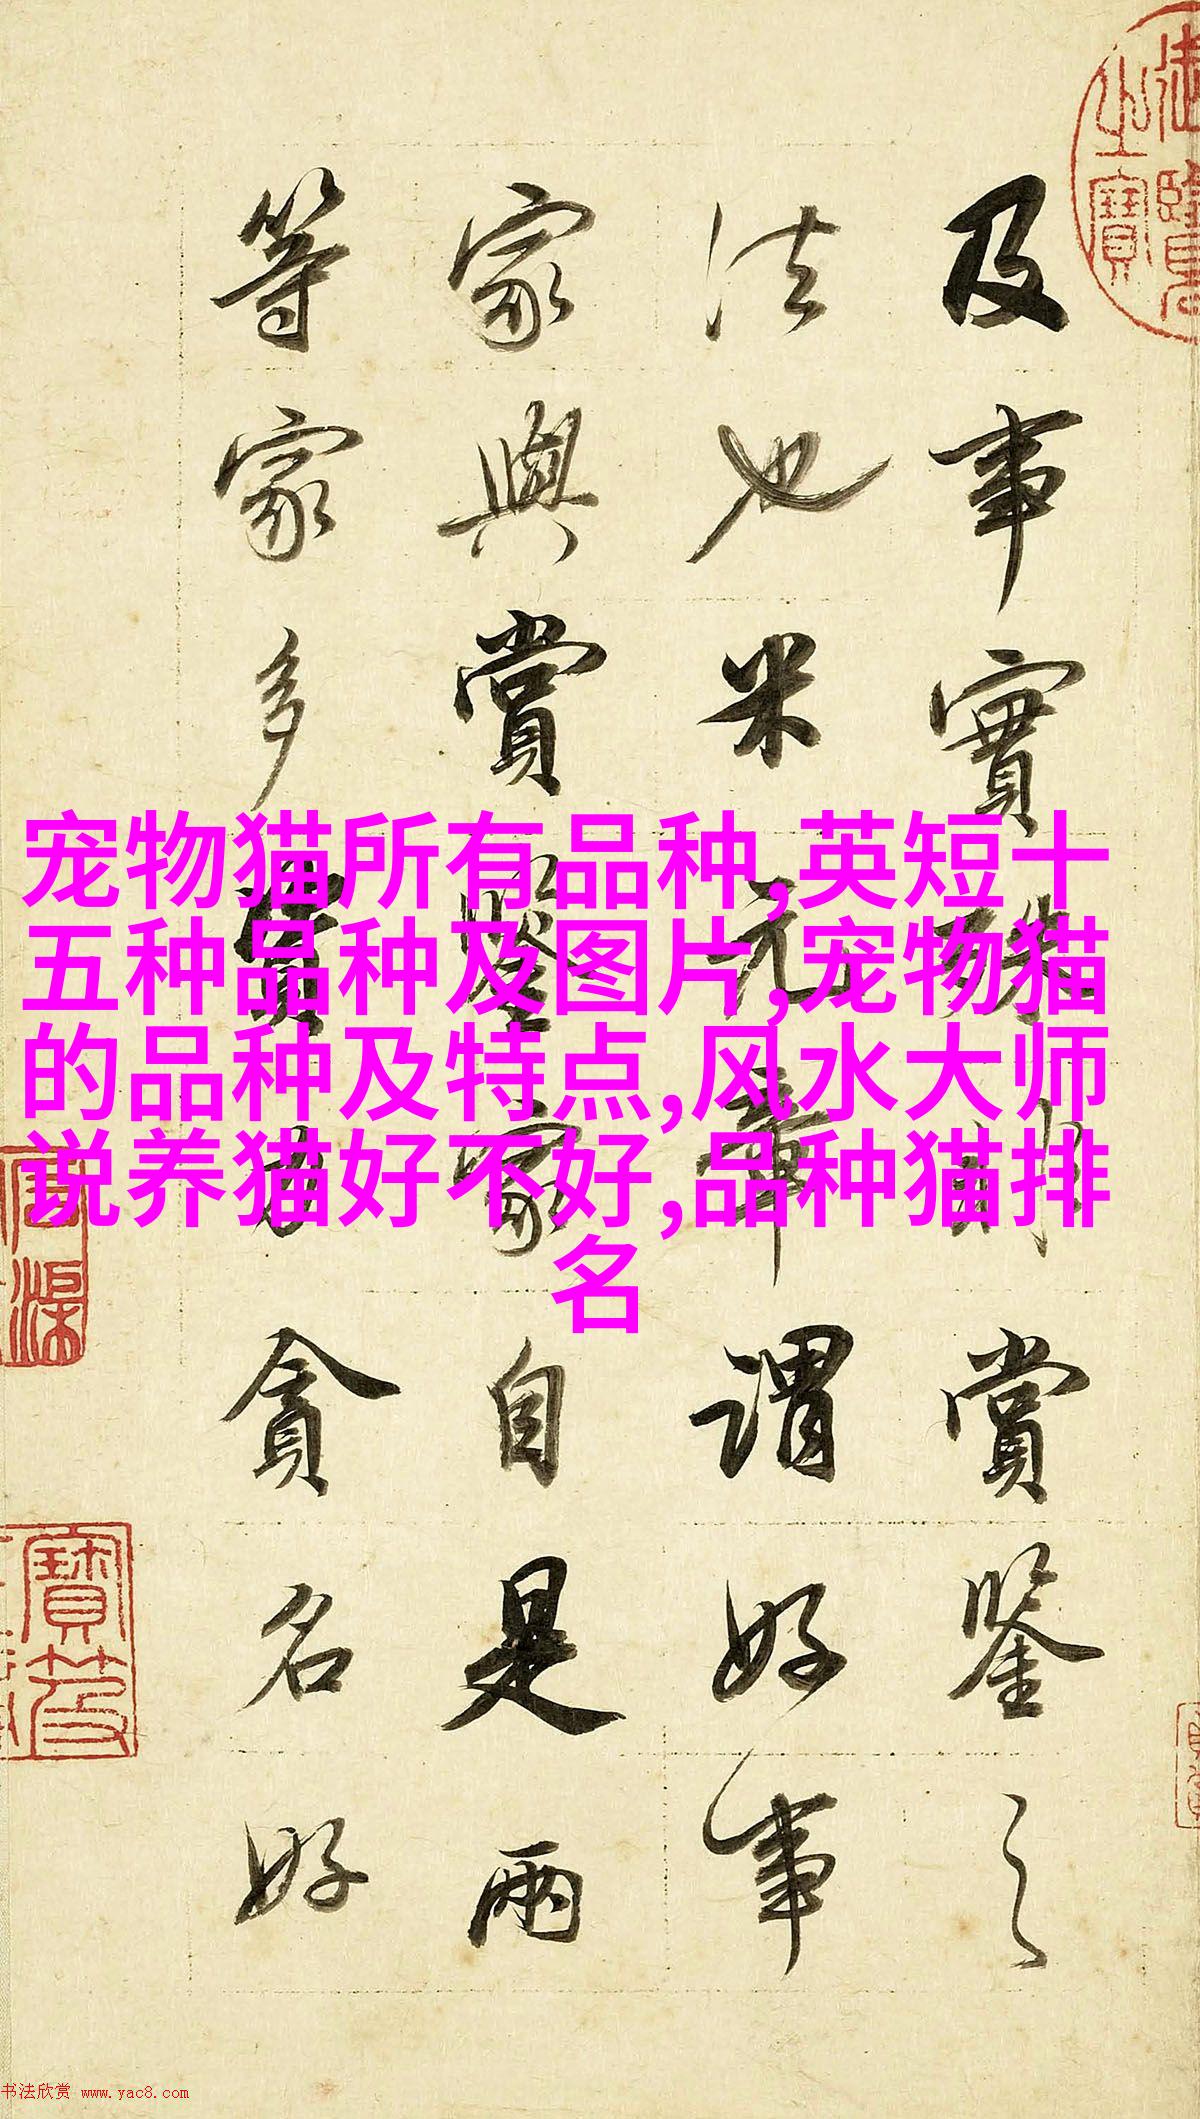 及事實殊別賞鑒之
法也米元章謂好事
家與賞鑒家自是兩
等家多資力貪名好
宠物猫所有品种,英短十
五种品种及图片,宠物猫
的品种及特点,风水大师
说养猫好不好,品种猫排
名
书法欣赏 www.yac8.com